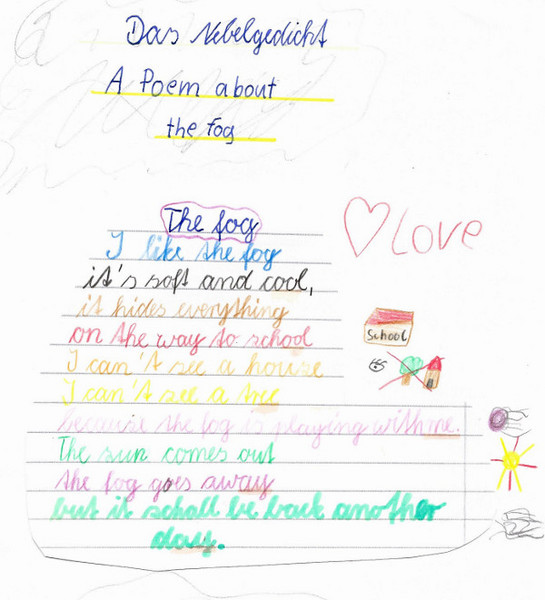 Das Nebelgedicht
A Poem about
the fog
The fog
Love
I like the fog
it's soft and cool,
it hides everything
on the way to school
School
I can't see a house
I can't see a tree
because the fog is playing with me.
The sun comes out
the fog goes away
but it schall be back another
day.